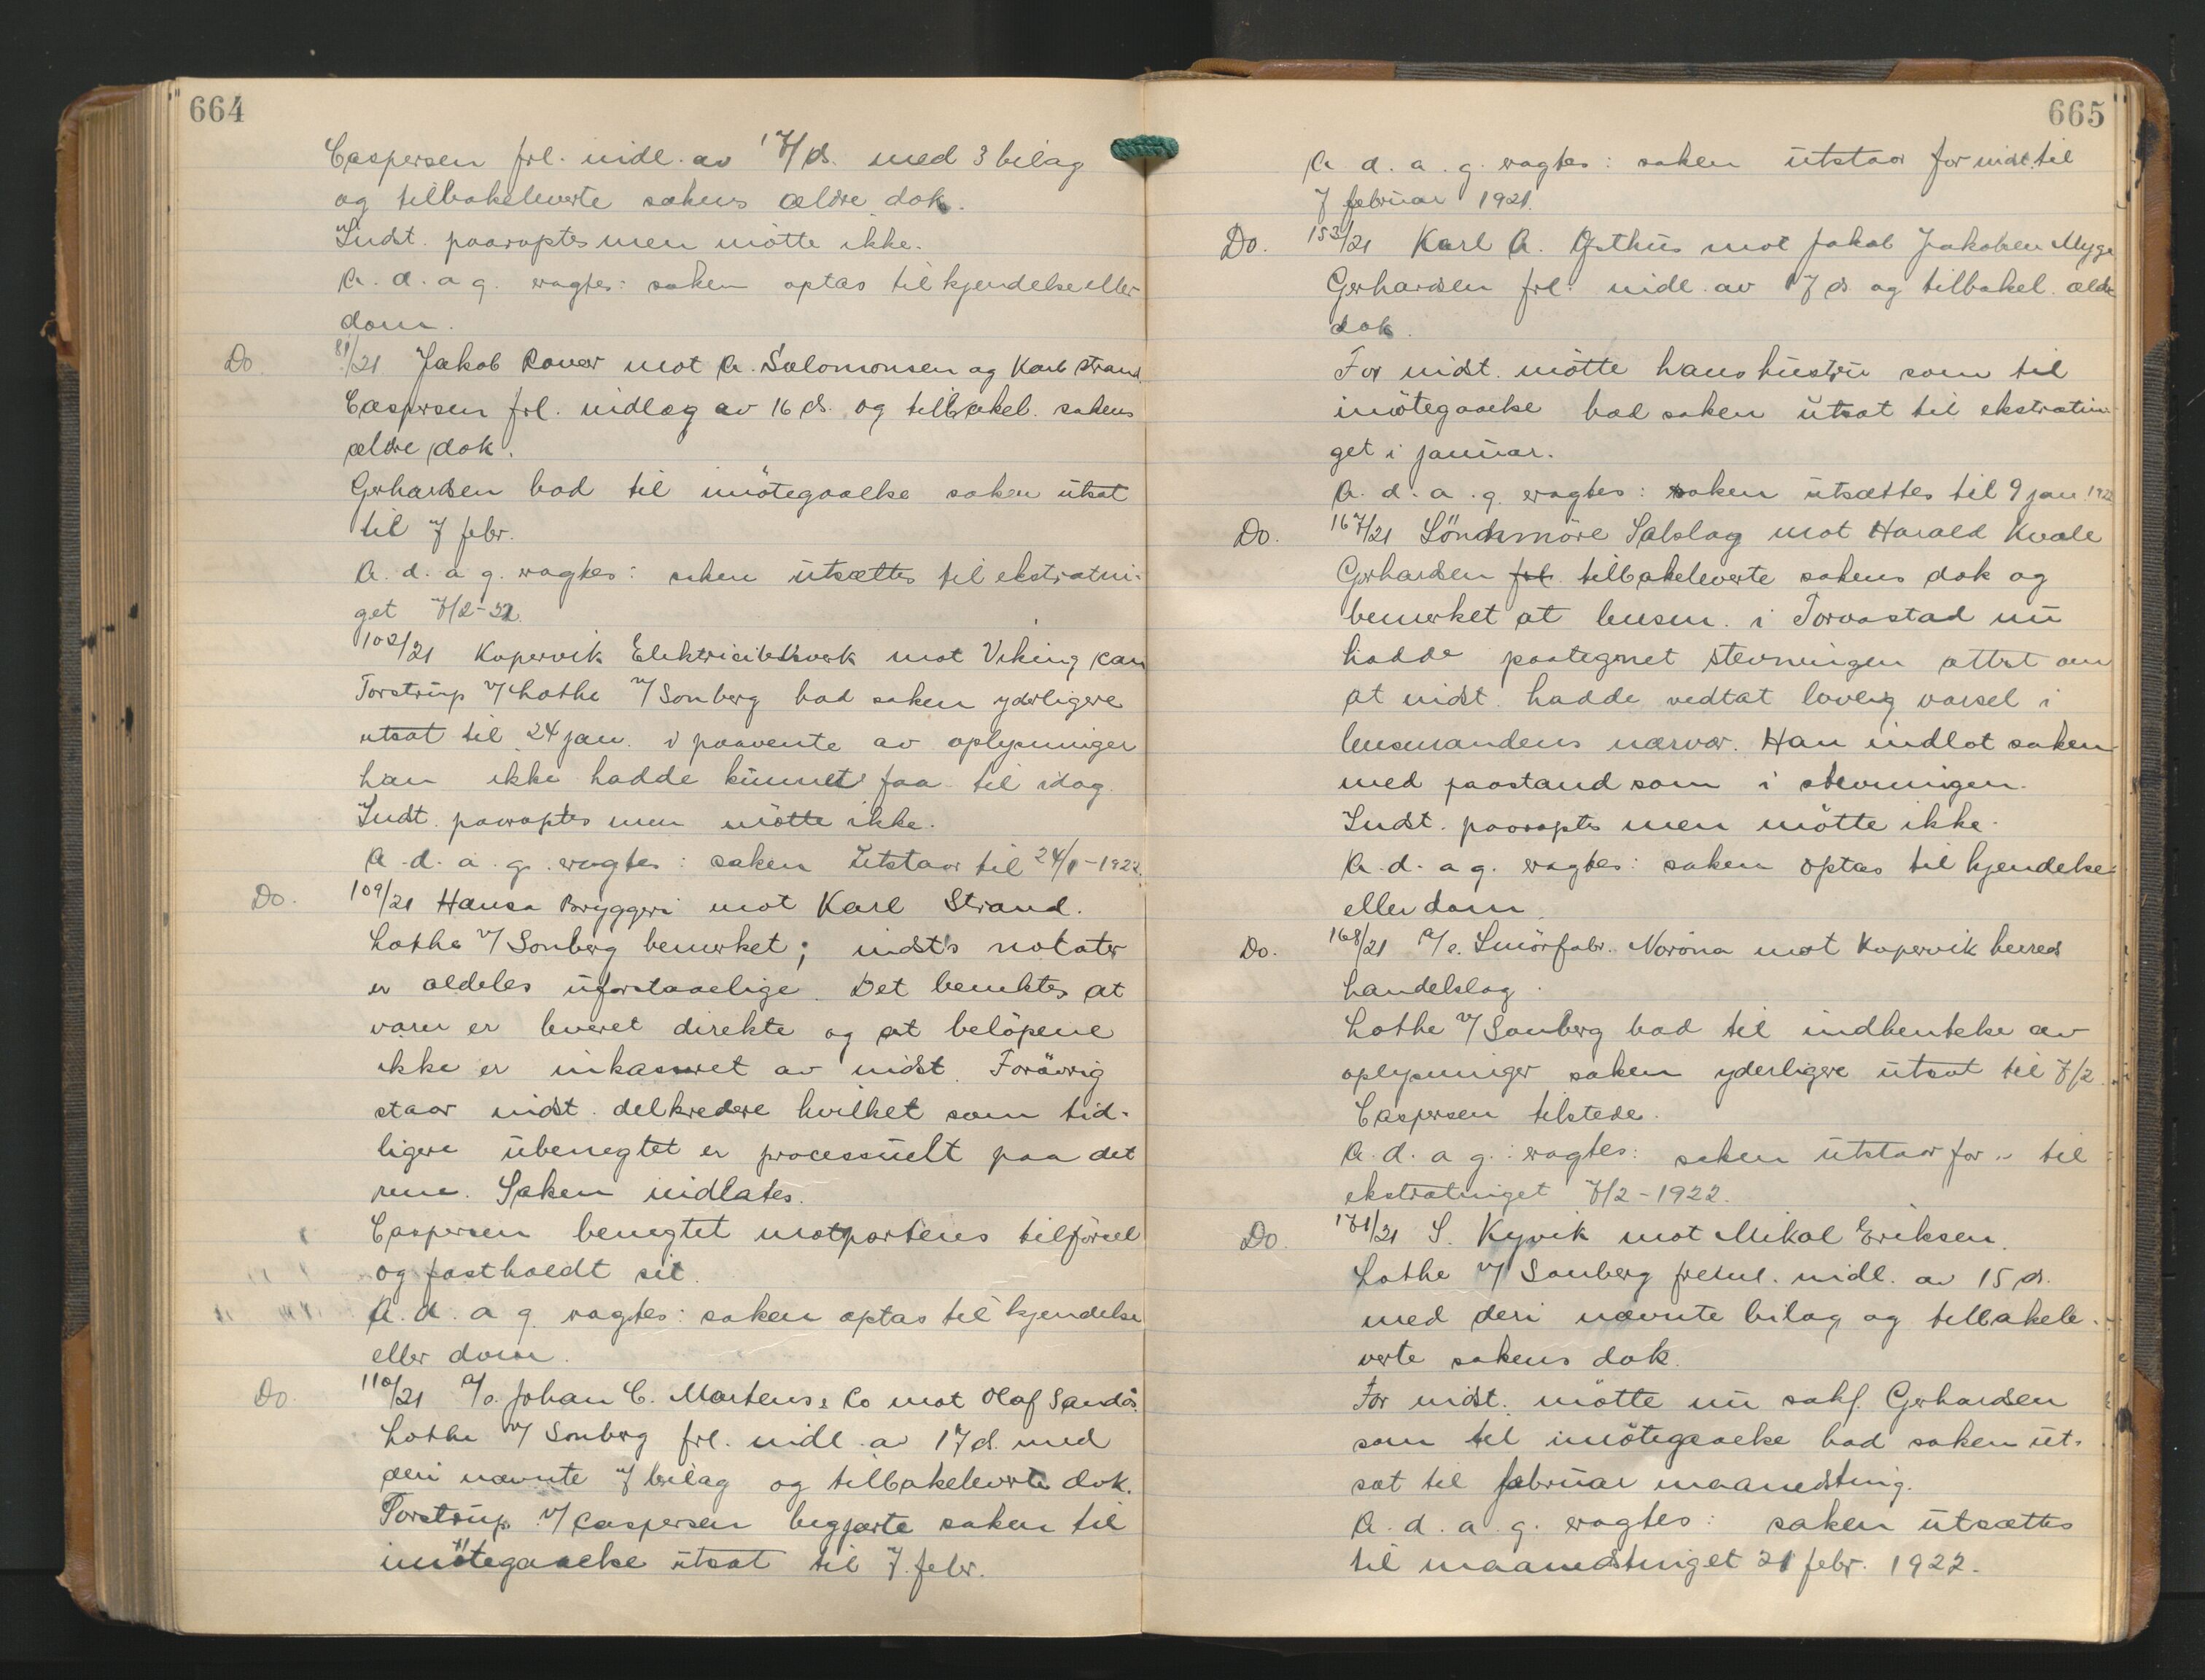 664
Caspersen frl. indl. av 17/ds. med 3 bilag
og tilbakeleverte sakens ældre dok.
Indst. paaroptes men mötte ikke.
A. d. a g. eragtes: saken optas til kjendelse eller
dom.
Do. 81/21 Jakob Rover mot A. Salomonsen og Karl Strand
Caspersen frl. indlæg av 16 ds. og tilbakel. sakens
ældre dok.
Gerhardsen bad til imötegaaelse saken utsat
til 7 febr.
A. d. a g. eragtes: saken utsættes til ekstratin-
get 7/2-22.
102/21 Kopervik Elektricitetsverk mot Viking kan
Torstrup v/ Lothe v/ Sonberg bad saken yderligere
utsat til 24 jan. i paavente av oplysninger
han ikke hadde kunnet faa til idag.
Indst. paaroptes men mötte ikke.
A. d. a. g. eragtes: saken utstaar til 24/1-1922.
Do. 109/21 Hansa Bryggeri mot Karl Strand.
Lothe v/ Sonberg bemerket; indst's notater
er aldeles uforstaaelige. Det benektes at
varer er leveret direkte og at belöpene
ikke er inkasseret av indst. Forövrig
staar indst. delkredere hvilket som tid-
ligere ubenegtet er processuelt paa det
rene. Saken indlates.
Caspersen benegtet motpartens tilförsel
og fastholdt sit.
A. d. a g. eragtes: saken optas til kjendelse
eller dom.
Do. 110/21 A/S. Johan C. Martens & Co mot Olaf Sandö.
Lothe v/ Sonberg frl. indl. a 17 d. med
deri nævnte 7 bilag og tilbakeleverte dok.
Torstrup v/ Caspersen begjærte saken til
imötegaaelse utsat til 7. febr.
665
A. d. a. g. eragtes: saken utstaar for indst. til
7 februar 1921.
Do. 153/21 Karl A. Östhus mot Jakob Jakobsen Myge
Gerhardsen frl. indl. av 17 ds og tilbakel. ældre
dok.
For indst. mötte hans hustru som til
imötegaaelse bad saken utsat til ekstratin-
get i januar.
A. d. a. g. eragtes: saken utsættes til 9 jan 1922
Do. 167/21 Söndmöre Salslag mot Harald Kvale
Gerhardsen frl. tilbakeleverte sakens dok og
bemerket at lensm. i Torvastad nu
hadde paategnet stevningen attest om
at indst. hadde vedtat lovlig varsel i
lensmandens nærvær. Han indlot saken
med paastand som i stevningen.
Indst. paaroptes men mötte ikke.
A. d. a g. eragtes: saken optas til kjendelse
eller dom.
Do. 168/21 A/S. Smörfabr. Norona mot Kopervik herreds
handelslag.
Lothe v/ Sonberg bad til indhentelse av
oplysninger saken yderligere utsat til 7/2.
Caspersen tilstede.
A. d. a g.: eragtes: saken utstaar for " til
ekstratinget 7/2-1922.
Do. 171/21 S. Kyvik mot Mikal Eriksen.
Lothe v/ Sonberg freml. indl. av 15 ds.
med deri nævnte bilag og tilbakele-
verte sakens dok.
For indst. mötte nu sakf. Gerhardsen
som til imötegaaelse bad saken ut-
sat til februar maanedsting.
A. d. a. g. eragtes: saken utsættes
til maanedstinget 21 febr. 1922.